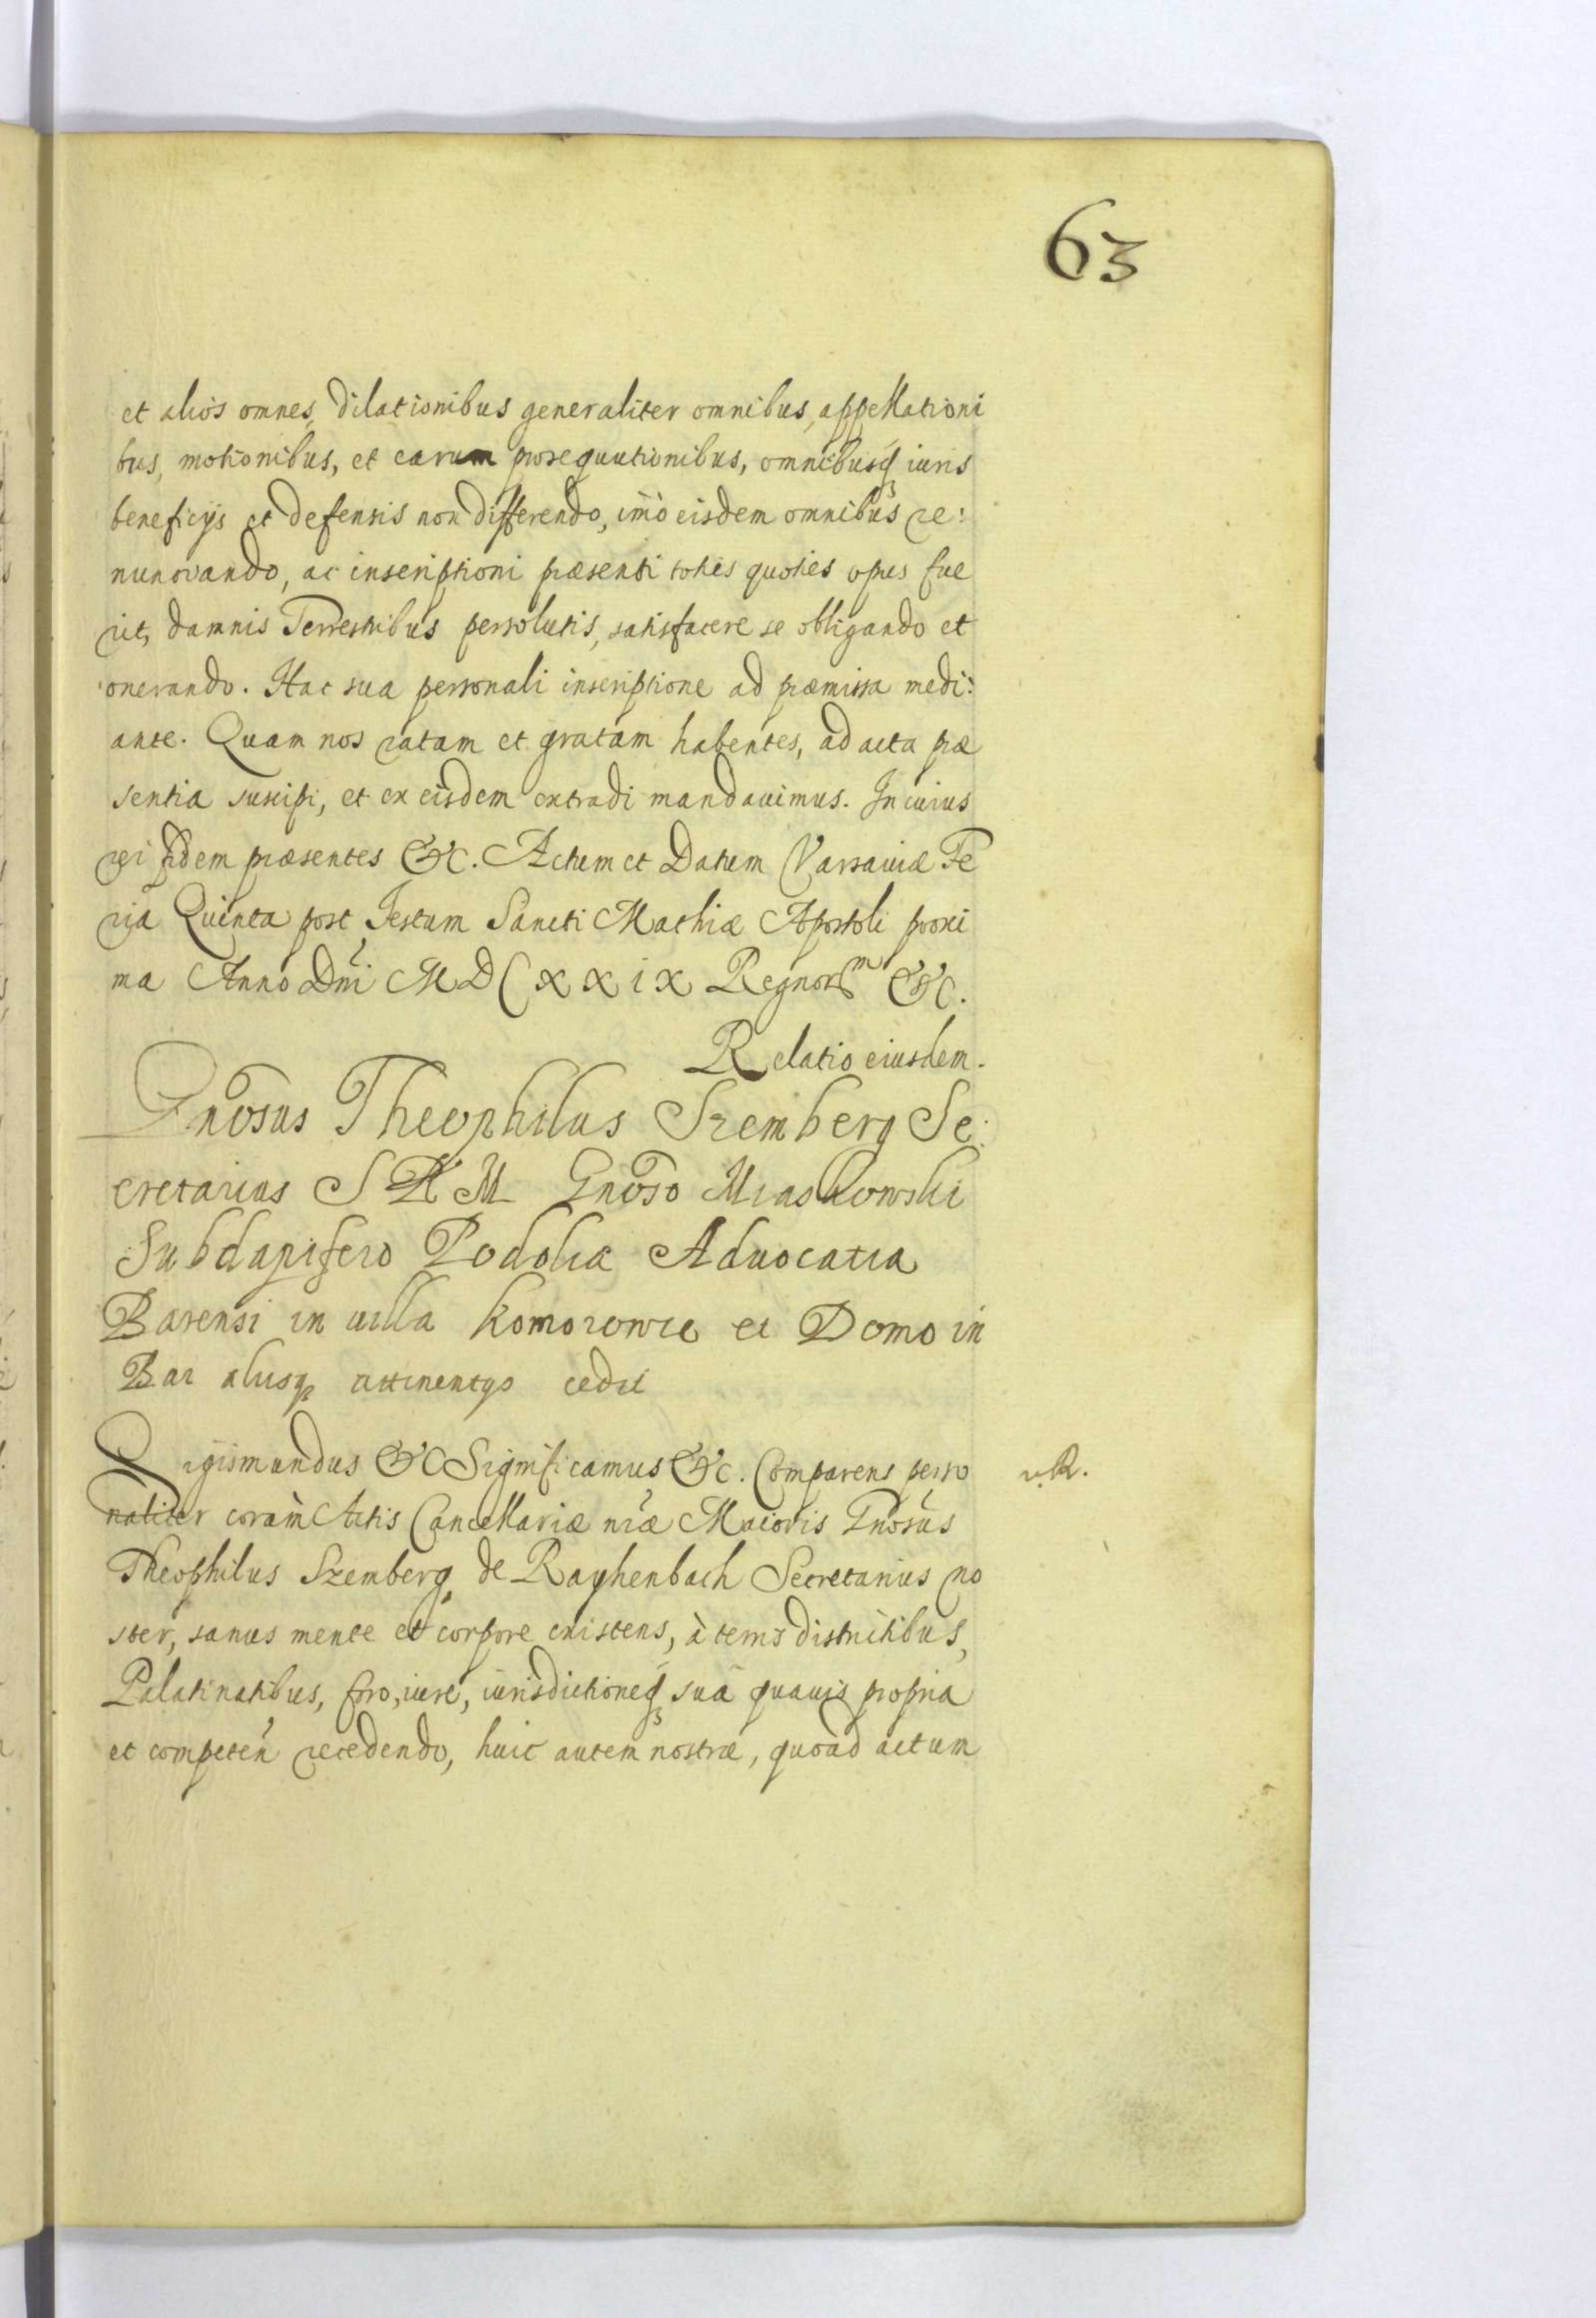 63
et alios omnes, dilationibus generaliter omnibus, appellationi
bus, motionibus, et earum prosequutionibus, omnibusq3 iuris
beneficijs et defensis non differendo, imò eisdem omnibus re:
nunciando, ac inscriptioni præsenti toties quoties opus fue
rit, damnis Terrestribus persolutis, satisfacere se obligando et
onerando. Hac sua personali inscriptione ad præmissa medi:
ante. Quam nos ratam et gratam habentes, ad acta præ
sentia suscipi, et ex eisdem extradi mandauimus. In cuius
rei fidem præsentes &c. Actum et Datum Varsauiæ Fe
ria Quinta post Festum Sancti Mathiæ Apostoli proxi
ma Anno Dni MDCxxix Regnorm &c.
Relatio eiusdem.
Gnosus Theophilus Szemberg Se:
cretarius S R M Gnoso Miaskowski
Subdapifero Podoliæ Aduocatia
Barensi in uilla Komorowce et Domo in
Bar alijsq3 attinentijs cedit
Sigismundus &c Significamus &c. Comparens perso
naliter coràm Actis Cancellariæ nræ Maioris Gnosus
Theophilus Szemberg de Rayhenbach Secretarius no
ster, sanus mente et corpore existens, à terris districtibus,
Palatinatibus, foro, iure, iurisdictioneq3 suâ quauis propria
et competen recedendo, huic autem nostræ, quoad actum